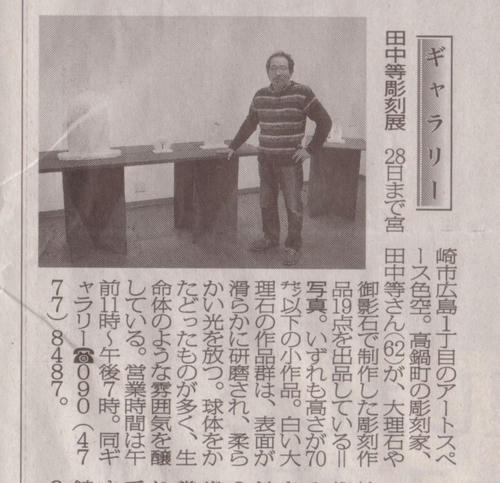 ギャラリー
田中等彫刻展 28日まで宮
崎市広島1丁目のアートスペ
ース色空。高鍋町の彫刻家、
田中等さん(62)が、大理石や
御影石で制作した彫刻作
品19点を出品している＝
写真。いずれも高さが70
㌢以下の小作品。白い大
理石の作品群は、表面が
滑らかに研磨され、柔ら
かい光を放つ。球体をか
たどったものが多く、生
命体のような雰囲気を醸
している。営業時間は午
前11時～午後7時。同ギ
ャラリー☎090（47
77）8487。